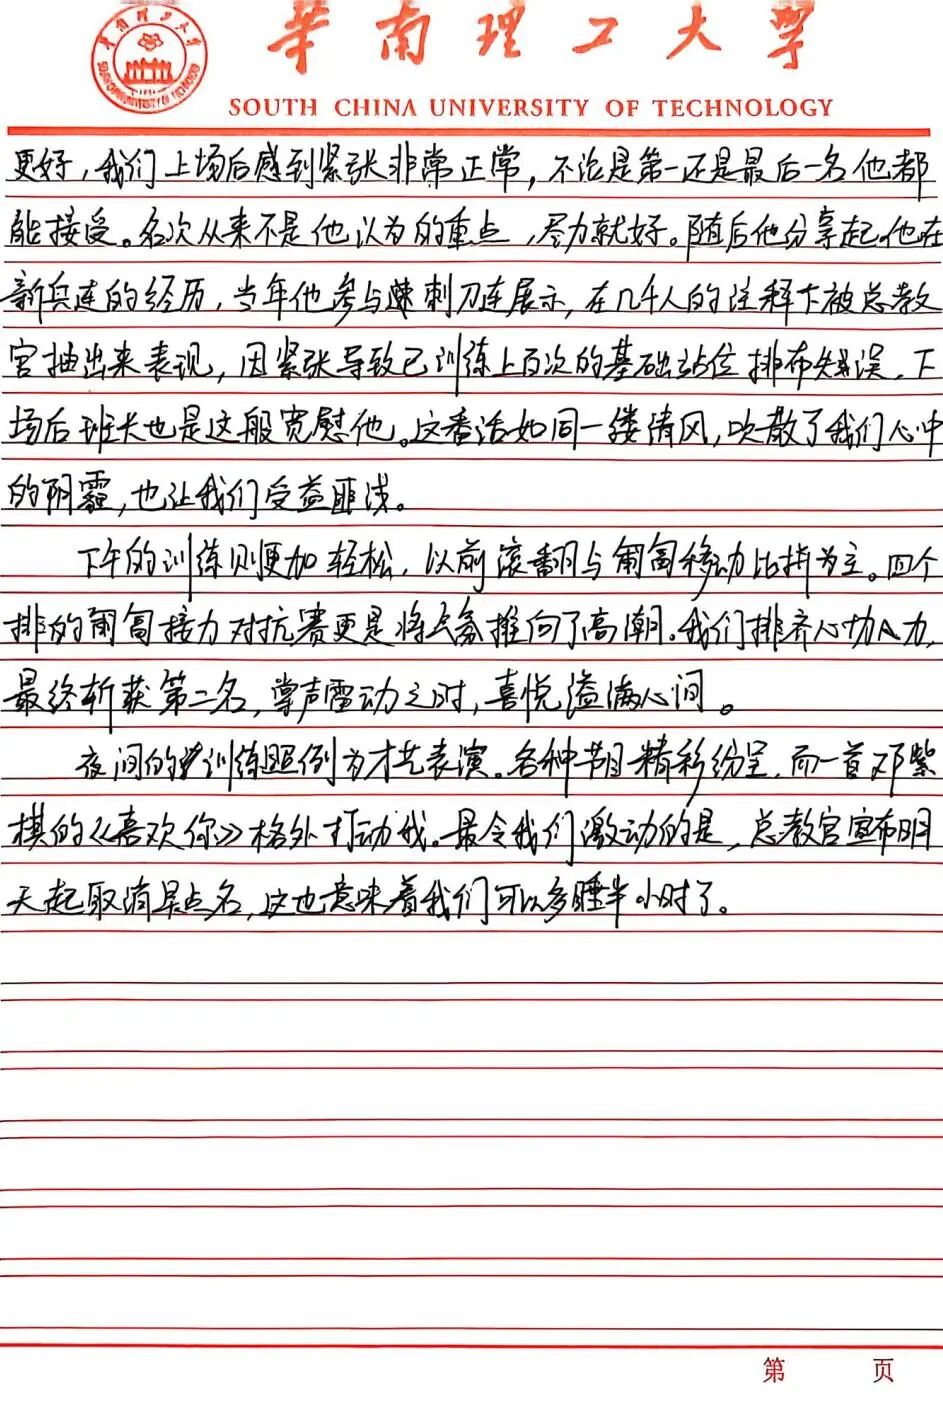 华南理工大学
SOUTH CHINA UNIVERSITY OF TECHNOLOGY
更好，我们上场后感到紧张非常正常，不论是第一还是最后一名他都
能接受。名次从来不是他认为的重点，尽力就好。随后他分享起他在
新兵连的经历，当年他参与刺刀连展示，在几千人的注释下被总教
官抽出来表现，因紧张导致已训练上百次的基础站位排布失误，下
场后班长也是这般宽慰他。这番话如同一缕清风，吹散了我们心中
的阴霾，也让我们受益匪浅。
下午的训练则更加轻松，以前滚翻与匍匐移动比拼为主。四个
排的匍匐接力对抗赛更是将气氛推向了高潮。我们排齐心协力，
最终斩获第二名，掌声雷动之时，喜悦溢满心间。
夜间的训练照例为才艺表演。各种节目精彩纷呈，而一首邓紫
棋的《喜欢你》格外打动我。最令我们激动的是，总教官宣布明
天起取消早点名，这也意味着我们可以多睡半小时了。
第 页